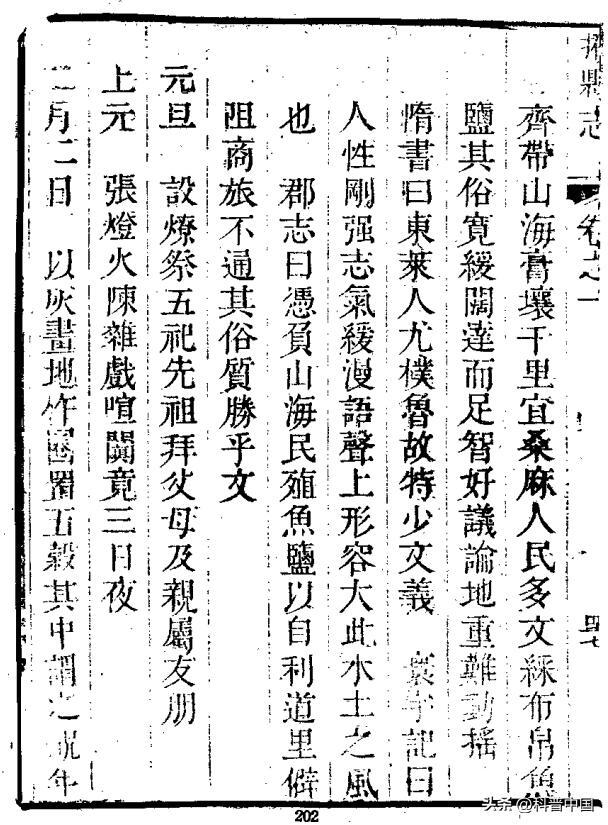 志 卷之一
齊帶山海膏壤千里宜桑麻人民多文綵布帛魚
鹽其俗寬緩闊達而足智好議論地重難動搖
惰書曰東萊人尤樸魯故特少文義 寰宇記曰
人性剛强志氣緩漫語聲上形容大此水土之風
也 郡志曰憑負山海民殖魚鹽以自利道里僻
阻商旅不通其俗質勝乎文
元旦 設燎祭五祀先祖拜父母及親屬友朋
上元 張燈火陳雜戲喧闐竟三日夜
二月二日 以灰畫地作囷置五穀其中謂之
202
头条 @科普中国